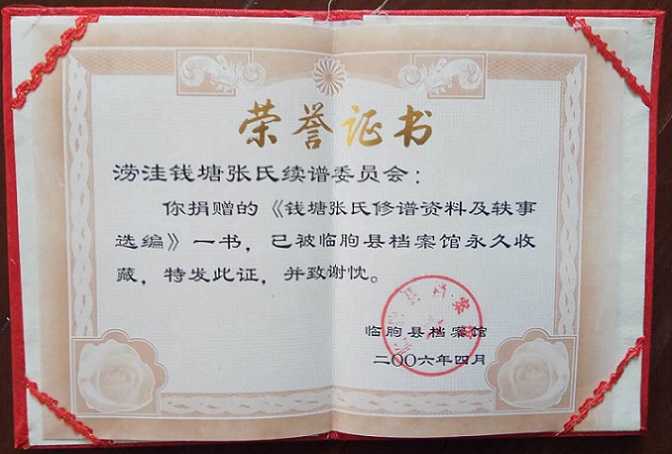 荣誉证书
涝洼钱塘张氏续谱委员会：
你捐赠的《钱塘张氏修谱资料及轶事
选编》一书，已被临朐县档案馆永久收
藏，特发此证，并致谢忱。
临朐县档案馆
二〇〇六年四月